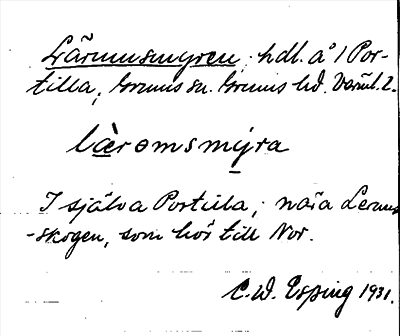 Lärmusmyren, hdl. å 1 Por-
tilla, Grums sn. Grums hd. Värml. l.
làromsmýra
I själva Portilla, nära Lerums
-skogen, som hör till Nor.
C. W. Esping 1931.